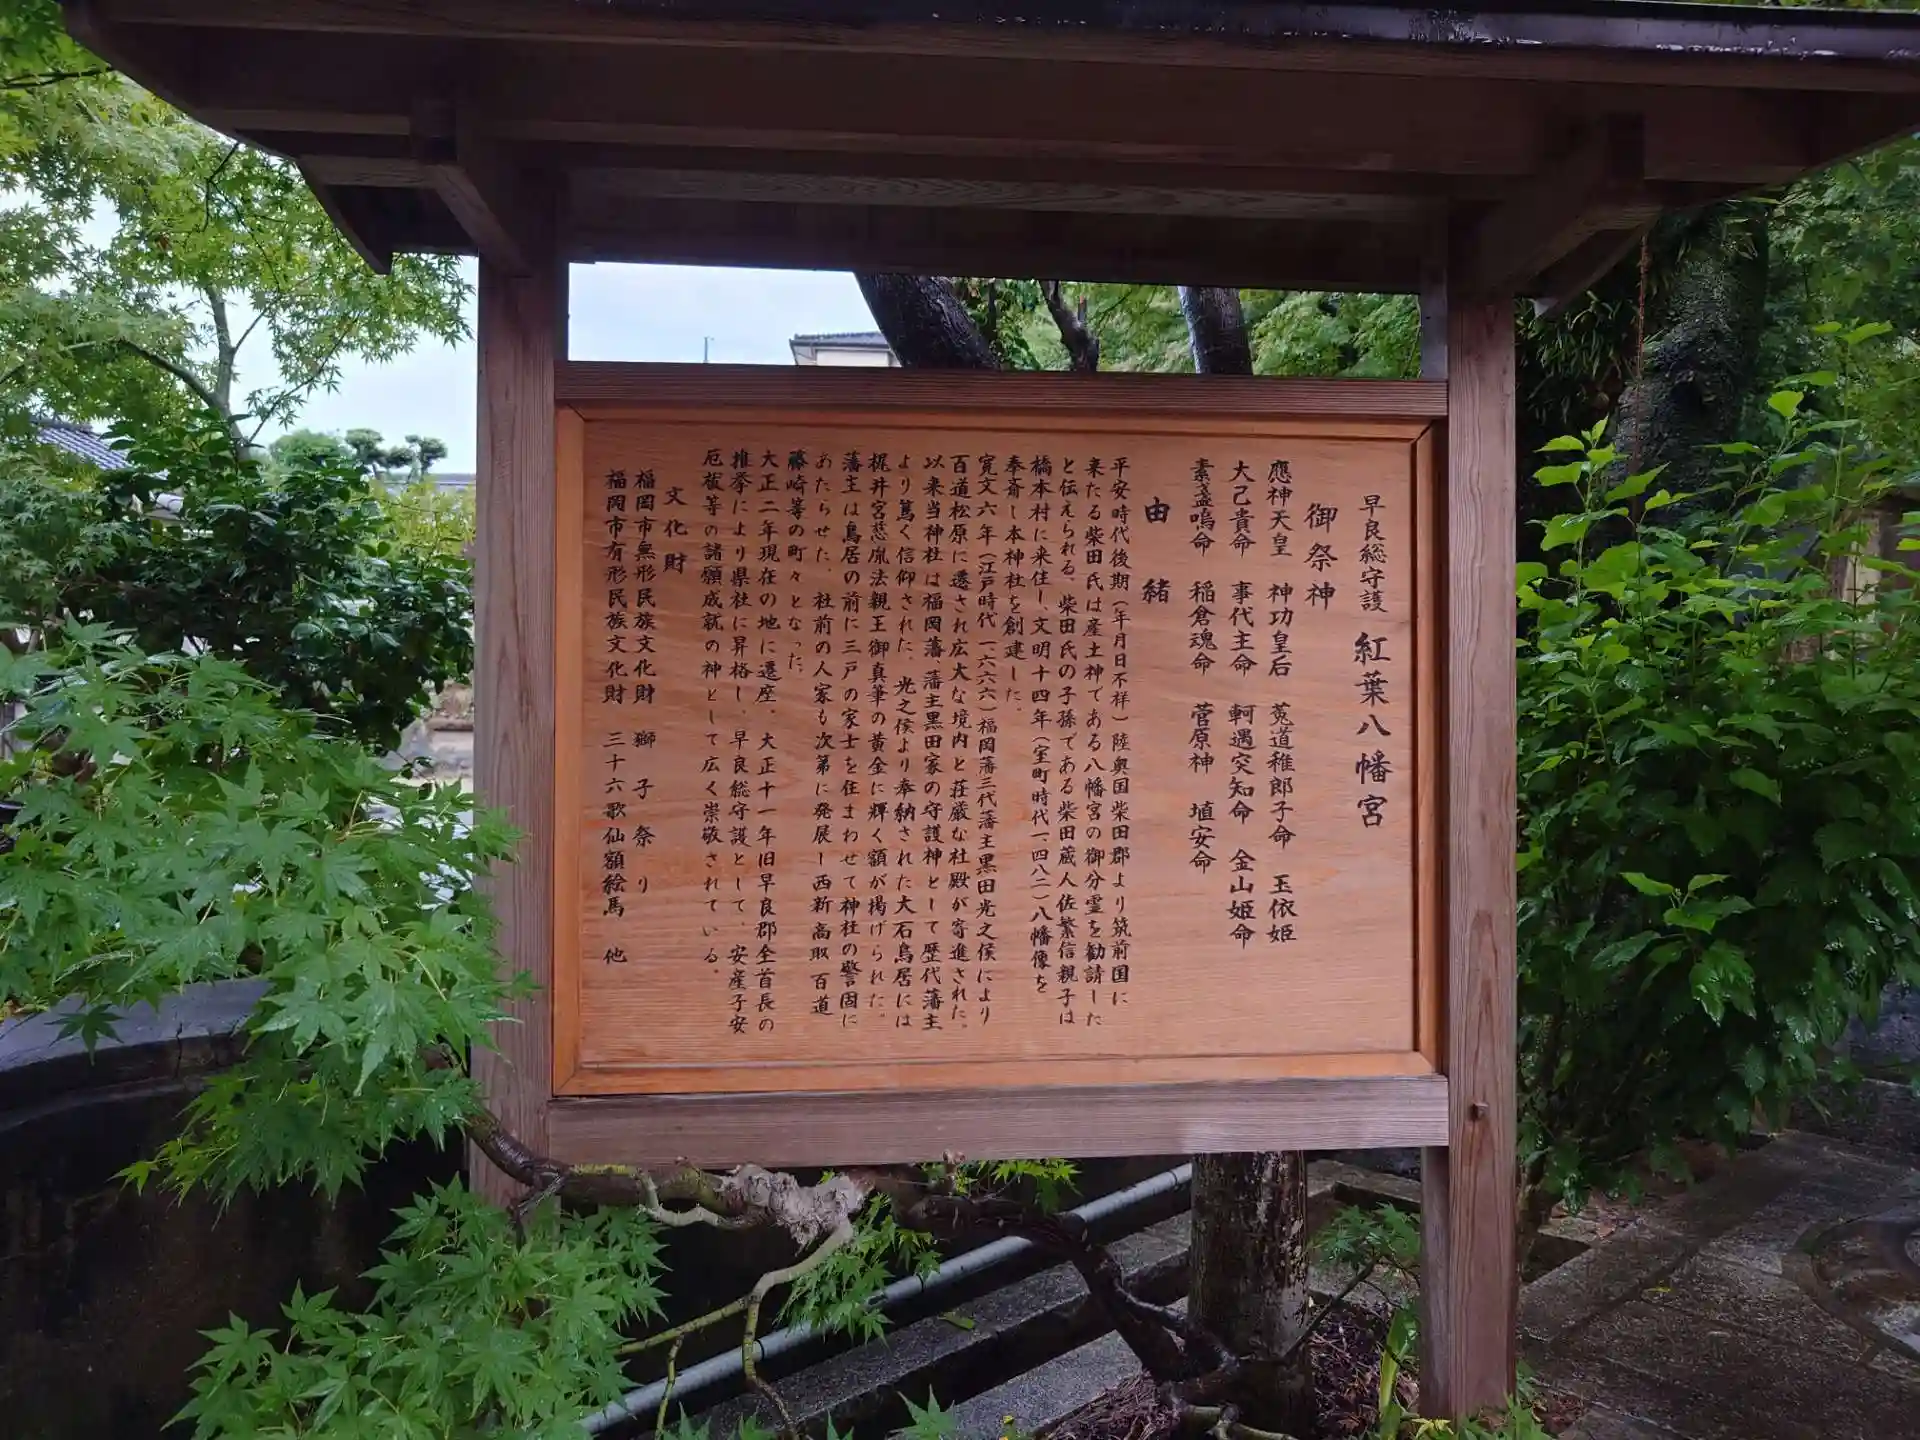 早良総守護 紅葉八幡宮
御祭神
應神天皇 神功皇后 菟道稚郎子命 玉依姫
大己貴命 事代主命 軻遇突知命 金山姫命
素盞嗚命 稲倉魂命 菅原神 埴安命
由緒
平安時代後期(年月日不祥)陸奥国柴田郡より筑前国に
来たる柴田氏は産土神である八幡宮の御分霊を勧請した
と伝えられる、柴田氏の子孫である柴田蔵人佐繁信親子は
橋本村に来住し、文明十四年(室町時代一四八二)八幡像を
奉斎し本神社を創建した。
寛文六年(江戸時代一六六六)福岡藩三代藩主黒田光之侯により
百道松原に遷され広大な境内と荘厳な社殿が寄進された。
以来当神社は福岡藩、藩主黒田家の守護神として歴代藩主
より篤く信仰された、光之侯より奉納された大石鳥居には
梶井宮慈胤法親王御真筆の黄金に輝く額が掲げられた。
藩主は鳥居の前に三戸の家士を住まわせて神社の警固に
あたらせた、社前の人家も次第に発展し西新 高取 百道
藤崎等の町々となった。
大正二年現在の地に遷座。大正十一年旧早良郡全首長の
推挙により県社に昇格し、早良総守護として、安産子安
厄祓等の諸願成就の神として広く崇敬されている。
文化財
福岡市無形民族文化財 獅子祭り
福岡市有形民族文化財 三十六歌仙額絵馬 他